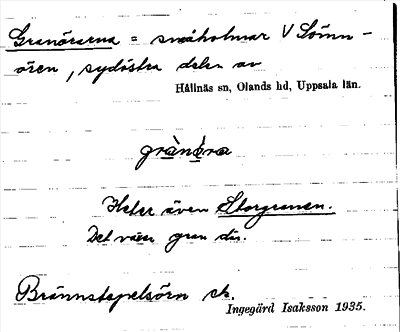 Granörarna = småholmar V Sömn-
ören, sydöstra delen av
Hållnäs sn, Olands hd, Uppsala län.
grànø̀ra
Heter även Storgranen.
Det växer gran där.
Brännstapelsörn sk.
Ingegärd Isaksson 1935.